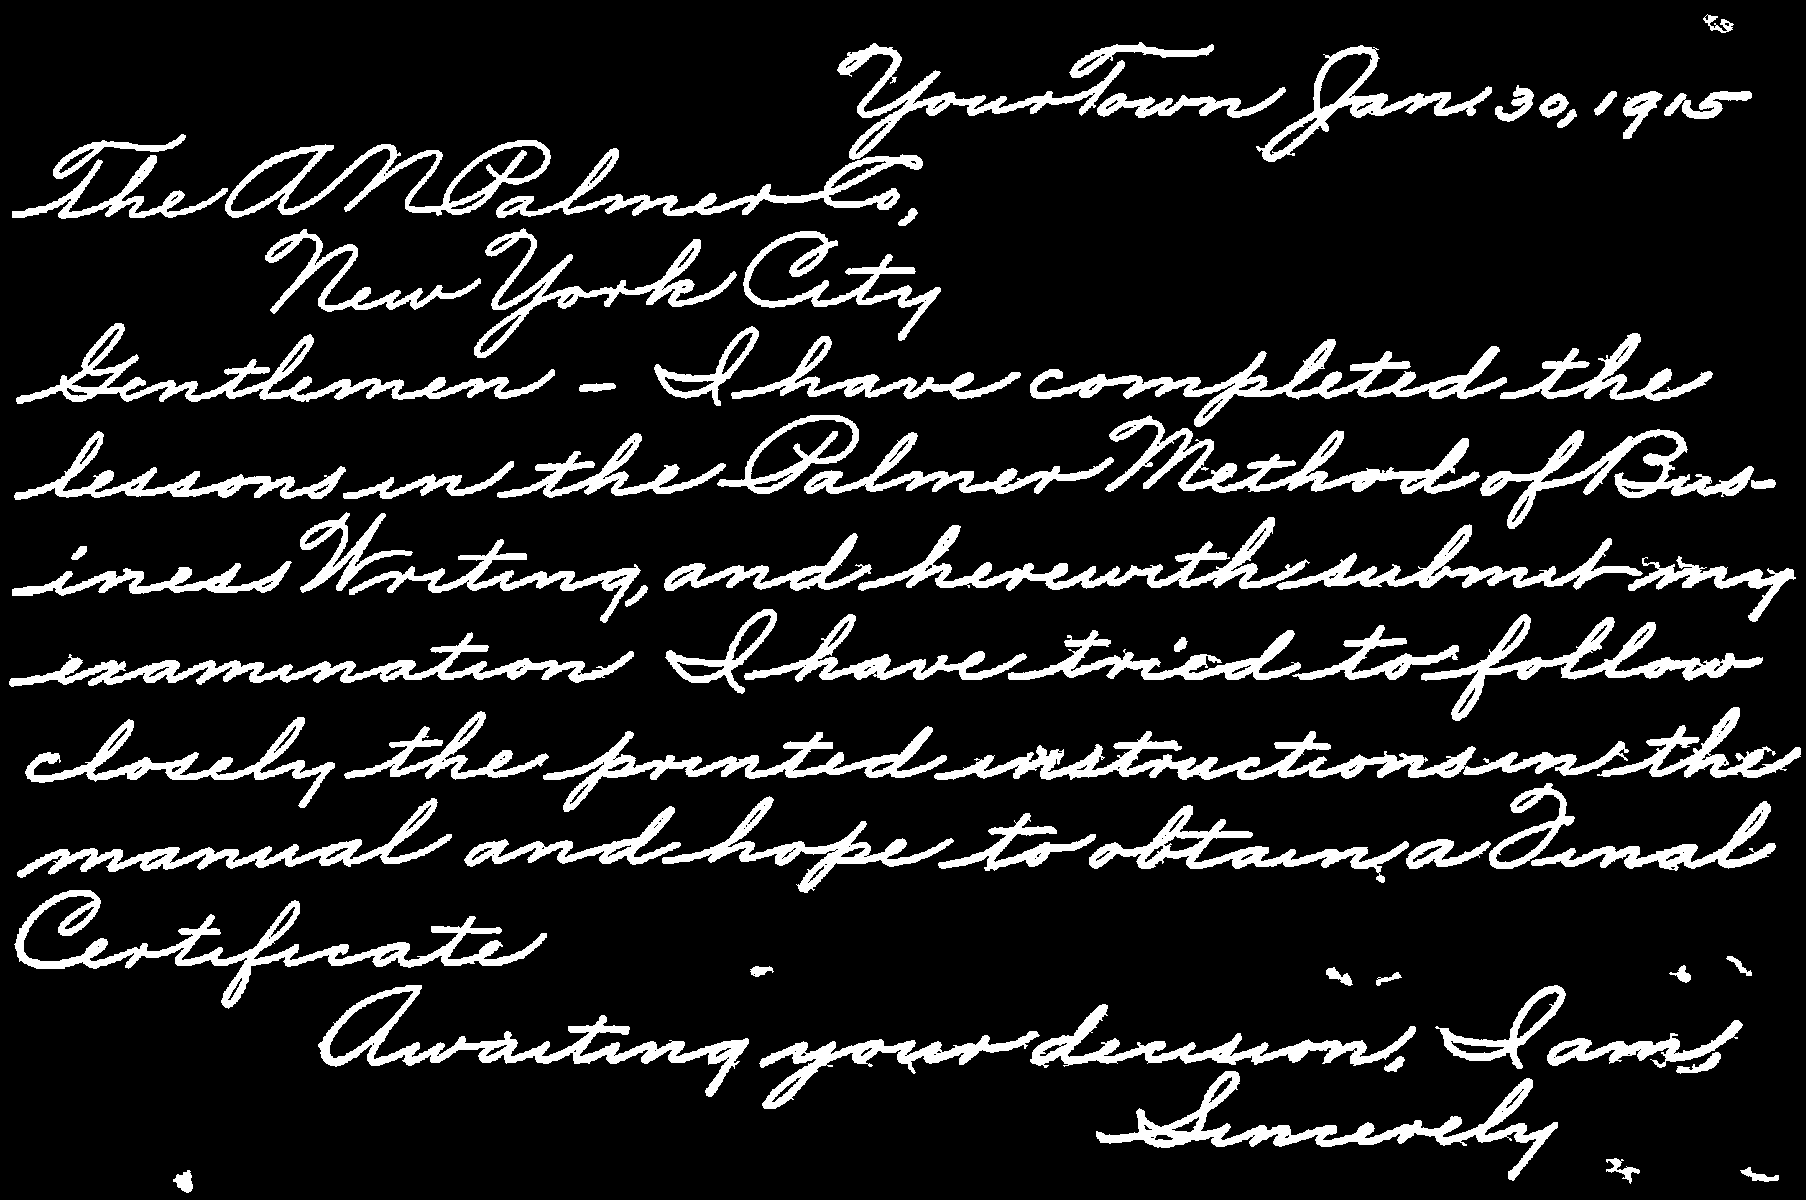 Your Town Jan. 30, 1915
The A N Palmer Co,
New York City
Gentlemen - I have completed the
lessons in the Palmer Method of Bus-
iness Writing, and herewith submit my
examination I have tried to follow
closely the printed instructions in the
manual and hope to obtain a Final
Certificate
Awaiting your decision, I am,
Sincerely